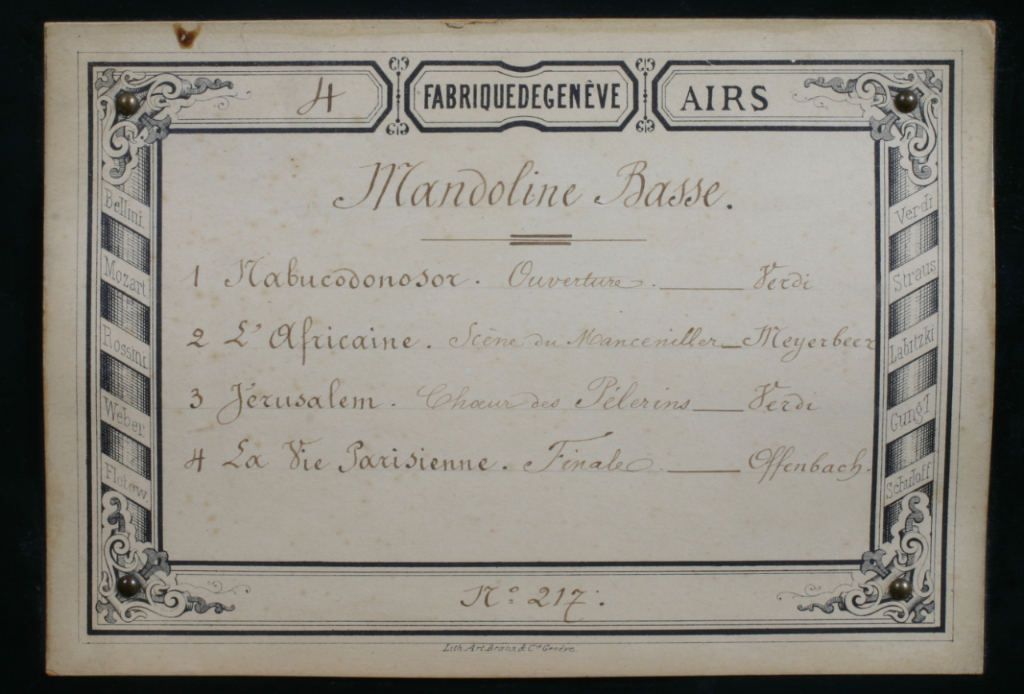 4 FABRIQUE DE GENÈVE AIRS
Mandoline Basse.
1 Nabucodonosor. Ouverture. Verdi
2 L'Africaine. Scène du Manceniller Meyerbeer
3 Jérusalem. Chœur des Pélerins Verdi
4 La Vie Parisienne. Finale Offenbach.
Bellini.
Mozart.
Rossini.
Weber.
Flotow.
Verdi
Straus
Labitzki
Gung'l
Schuloff
No. 217.
Lith. Art. Braun & Cie Genève.